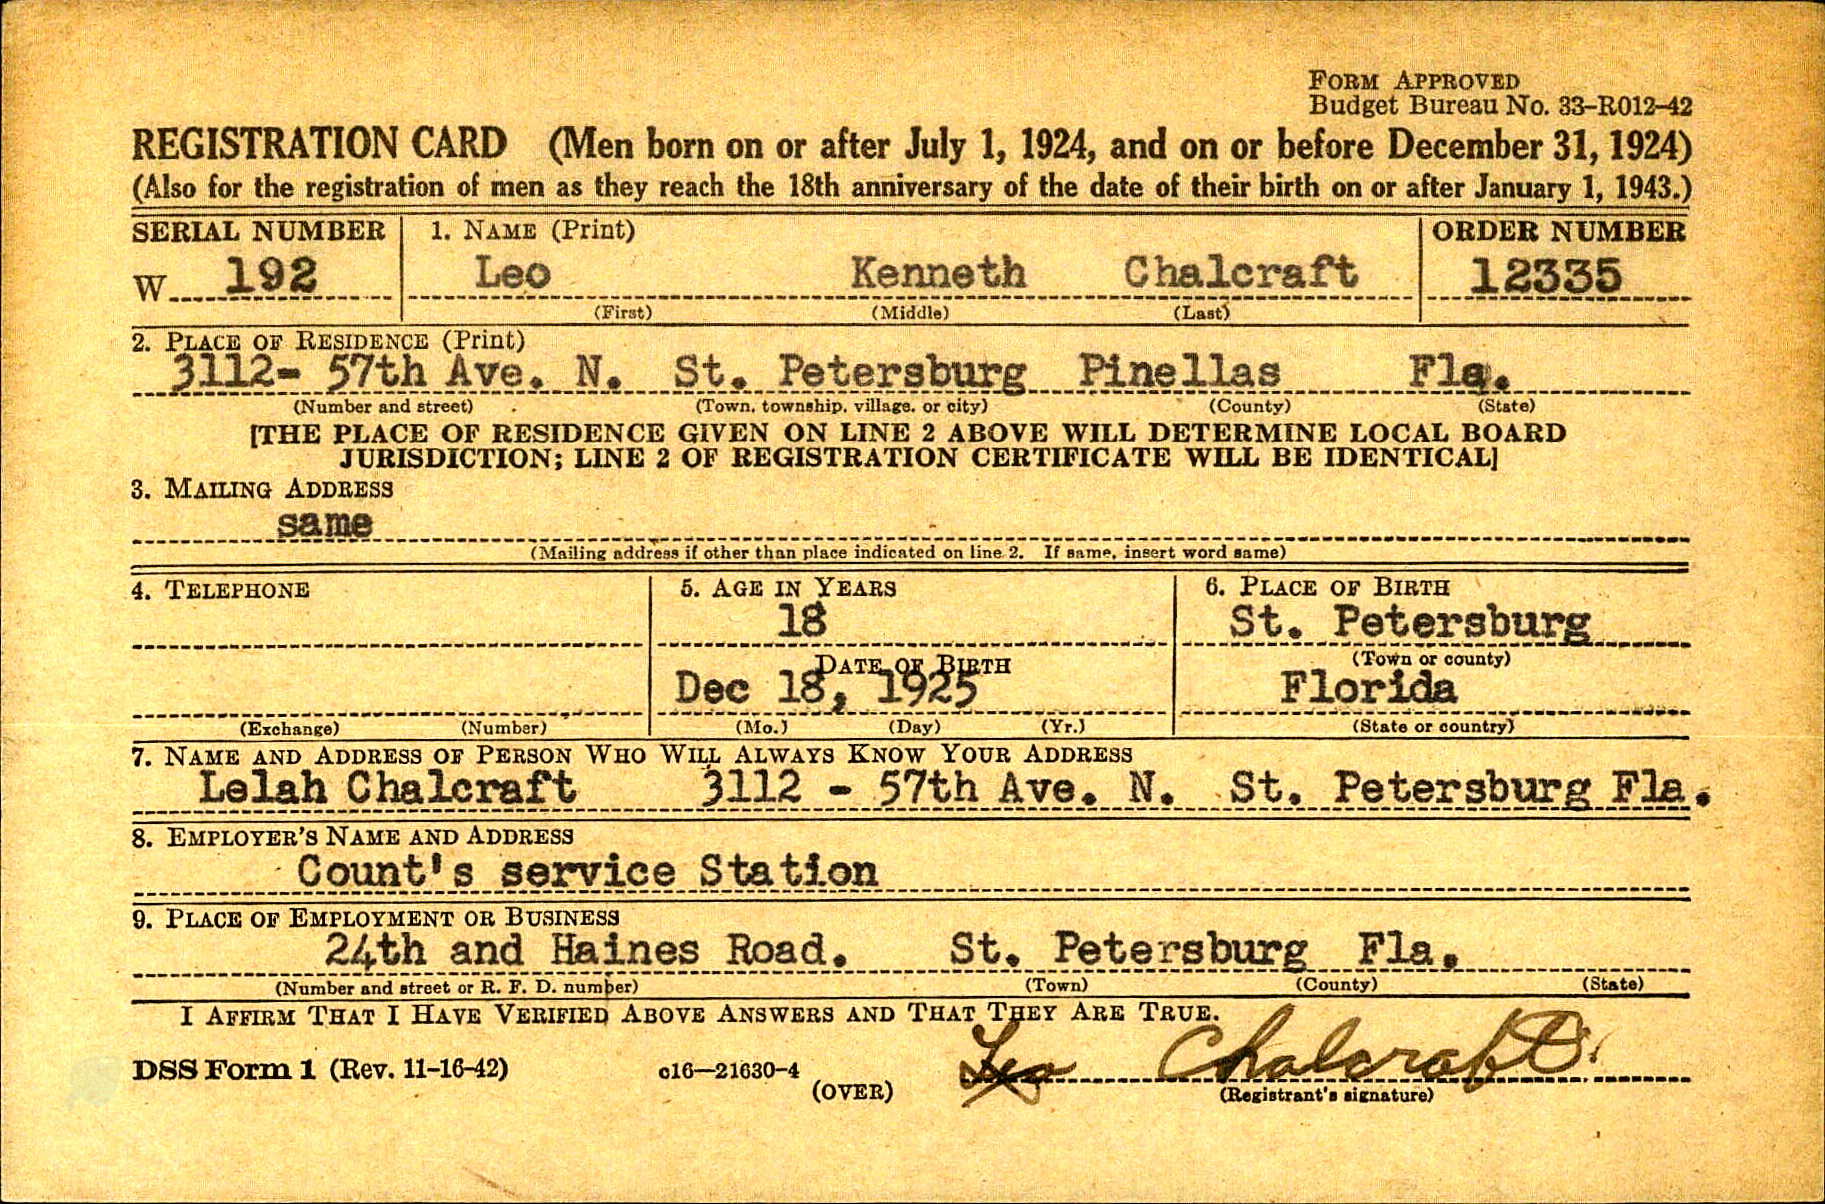 FORM APPROVED
Budget Bureau No. 33-R012-42
REGISTRATION CARD (Men born on or after July 1, 1924, and on or before December 31, 1924)
(Also for the registration of men as they reach the 18th anniversary of the date of their birth on or after January 1, 1943.)
SERIAL NUMBER 1. NAME (Print) ORDER NUMBER
W 192 Leo Kenneth Chalcraft 12335
(First) (Middle) (Last)
2. PLACE OF RESIDENCE (Print)
3112- 57th Ave. N. St. Petersburg Pinellas Fla.
(Number and street) (Town, township, village, or city) (County) (State)
[THE PLACE OF RESIDENCE GIVEN ON LINE 2 ABOVE WILL DETERMINE LOCAL BOARD
JURISDICTION; LINE 2 OF REGISTRATION CERTIFICATE WILL BE IDENTICAL]
3. MAILING ADDRESS
same
(Mailing address if other than place indicated on line 2. If same, insert word same)
4. TELEPHONE 5. AGE IN YEARS 6. PLACE OF BIRTH
18 St. Petersburg
DATE OF BIRTH (Town or county)
Dec 18, 1925 Florida
(Exchange) (Number) (Mo.) (Day) (Yr.) (State or country)
7. NAME AND ADDRESS OF PERSON WHO WILL ALWAYS KNOW YOUR ADDRESS
Lelah Chalcraft 3112 - 57th Ave. N. St. Petersburg Fla.
8. EMPLOYER'S NAME AND ADDRESS
Count's service Station
9. PLACE OF EMPLOYMENT OR BUSINESS
24th and Haines Road. St. Petersburg Fla.
(Number and street or R. F. D. number) (Town) (County) (State)
I AFFIRM THAT I HAVE VERIFIED ABOVE ANSWERS AND THAT THEY ARE TRUE.
DSS Form 1 (Rev. 11-16-42) c16—21630-4 (OVER) Leo Chalcraft
(Registrant's signature)